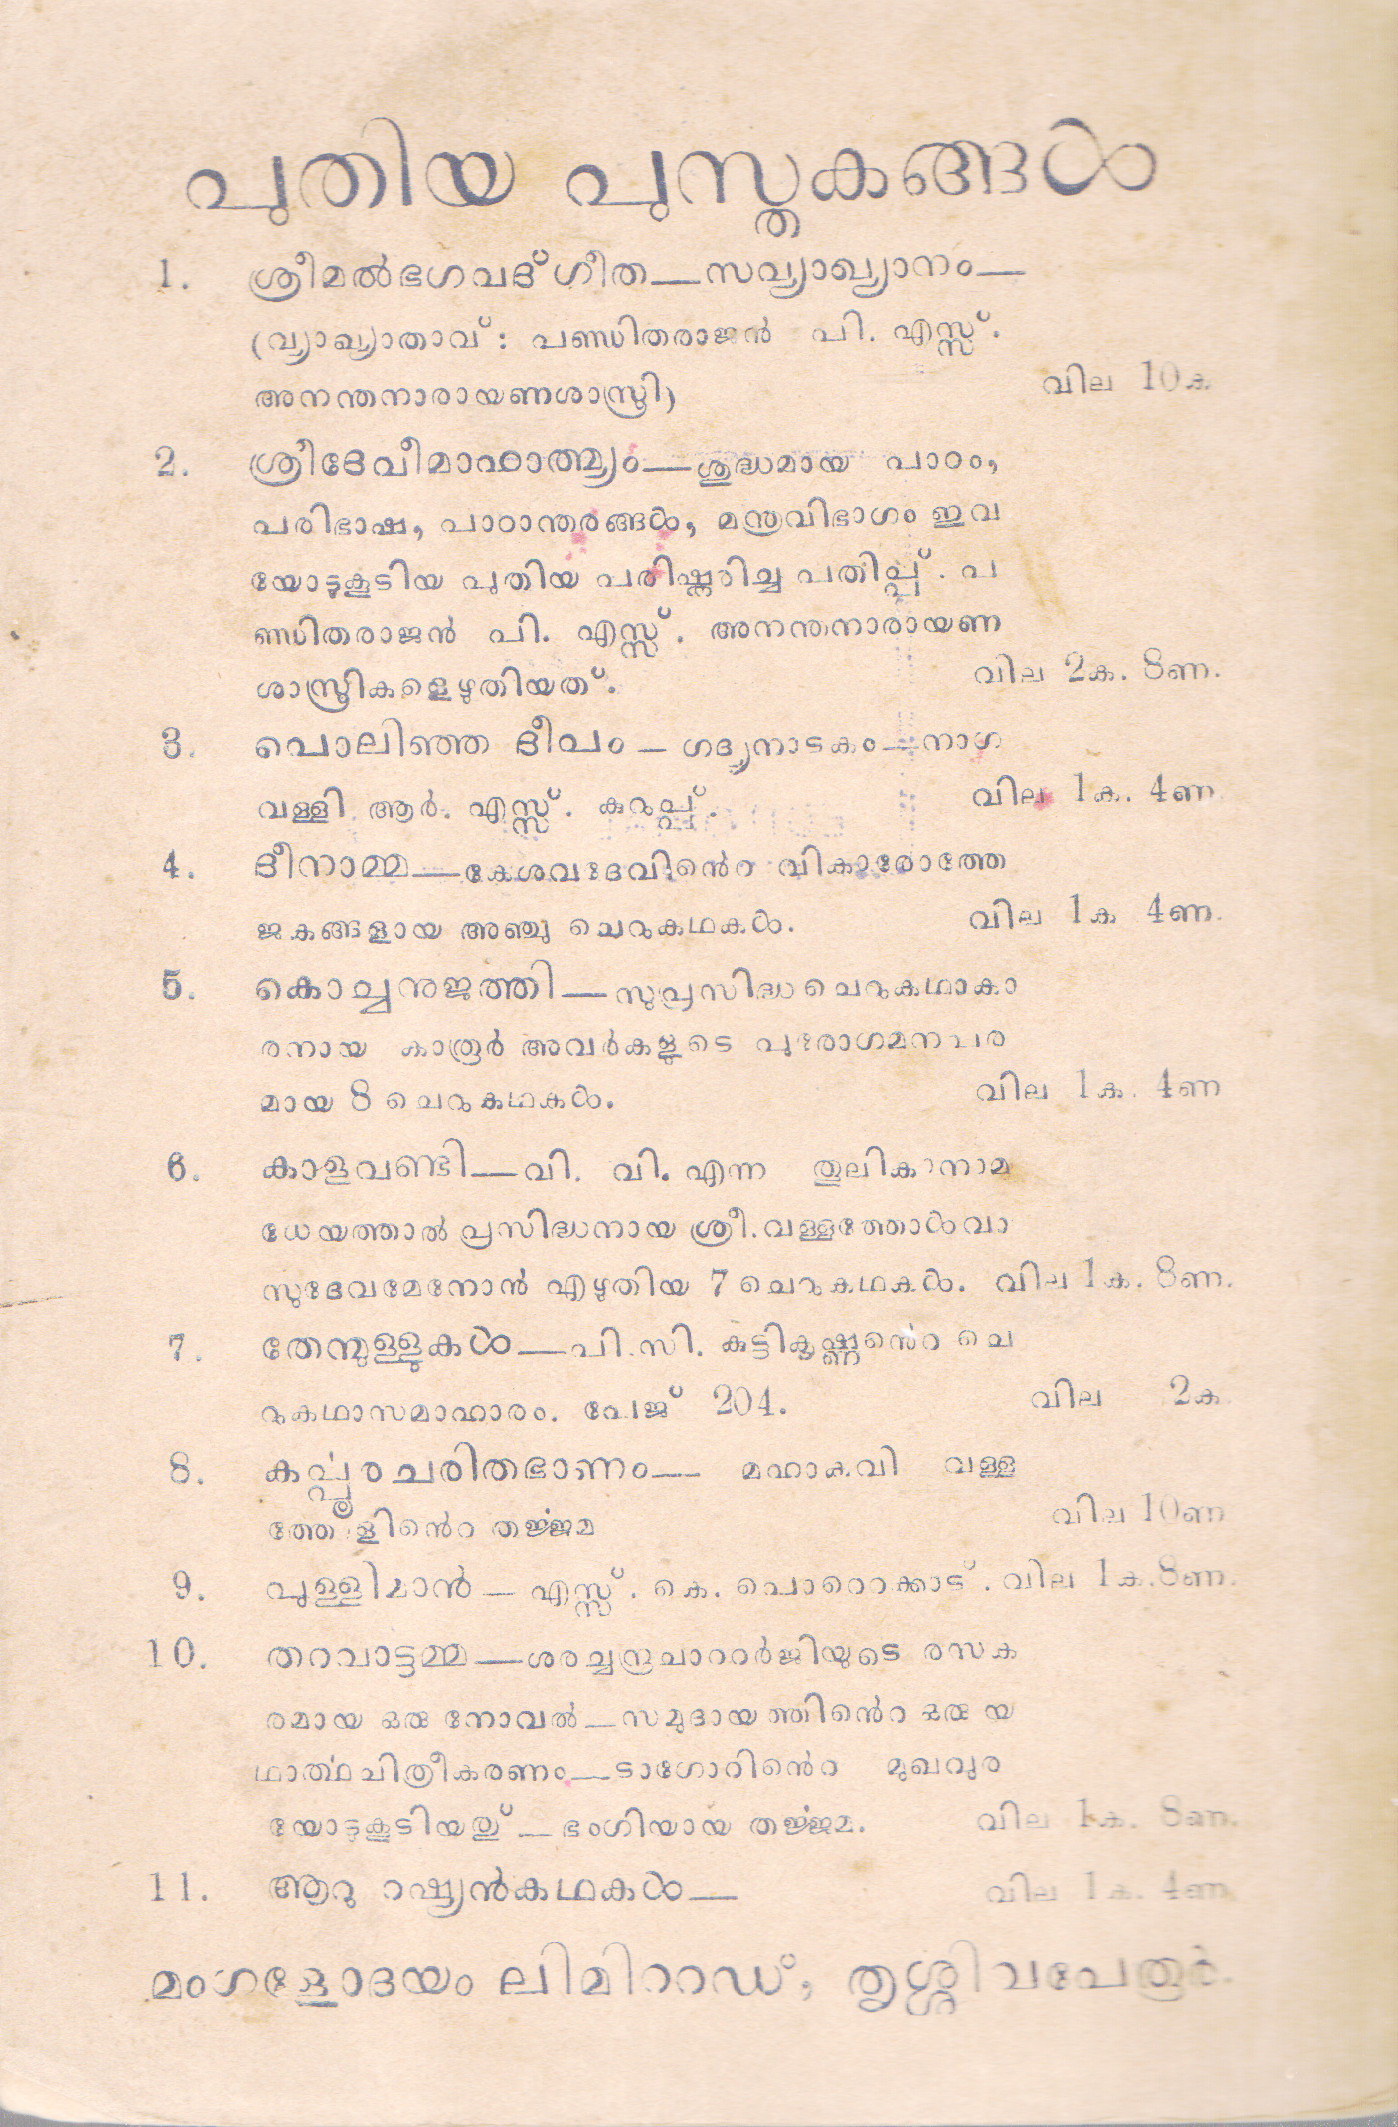 പുതിയ പുസ്തകങ്ങൾ
1. ശ്രീമൽഭഗവദ്ഗീത—സവ്യാഖ്യാനം—
(വ്യാഖ്യാതാവ്: പണ്ഡിതരാജൻ പി. എസ്സ്.
അനന്തനാരായണശാസ്ത്രി) വില 10ക
2. ശ്രീദേവീമാഹാത്മ്യം—ശുദ്ധമായ പാഠം,
പരിഭാഷ, പാഠാന്തരങ്ങൾ, മന്ത്രവിഭാഗം ഇവ
യോടുകൂടിയ പുതിയ പരിഷ്കരിച്ച പതിപ്പ്. പ
ണ്ഡിതരാജൻ പി. എസ്സ്. അനന്തനാരായണ
ശാസ്ത്രികളെഴുതിയത്. വില 2ക. 8ണ.
3. പൊലിഞ്ഞ ദീപം — ഗദ്യനാടകം—നാഗ
വള്ളി ആർ. എസ്സ്. കുറുപ്പ്. വില 1ക. 4ണ
4. ദീനാമ്മ—കേശവദേവിൻെറ വികാരോത്തേ
ജകങ്ങളായ അഞ്ചു ചെറുകഥകൾ. വില 1ക 4ണ.
5. കൊച്ചനുജത്തി—സുപ്രസിദ്ധ ചെറുകഥാകാ
രനായ കാരൂർ അവർകളുടെ പുരോഗമനപര
മായ 8 ചെറുകഥകൾ. വില 1ക. 4ണ
6. കാളവണ്ടി—വി. വി. എന്ന തൂലികാനാമ
ധേയത്താൽ പ്രസിദ്ധനായ ശ്രീ. വള്ളത്തോൾവാ
സുദേവമേനോൻ എഴുതിയ 7 ചെറുകഥകൾ. വില 1ക. 8ണ.
7. തേന്മുള്ളുകൾ—പി. സി. കുട്ടികൃഷ്ണൻെറ ചെ
റുകഥാസമാഹാരം. പേജ് 204. വില 2ക
8. കർപ്പൂരചരിതഭാണം— മഹാകവി വള്ള
ത്തോളിൻെറ തർജ്ജമ വില 10ണ
9. പുള്ളിമാൻ — എസ്സ്. കെ. പൊറെറക്കാട്. വില 1ക.8ണ.
10. തറവാട്ടമ്മ—ശരച്ചന്ദ്രചാററർജിയുടെ രസക
രമായ ഒരു നോവൽ—സമുദായത്തിൻെറ ഒരു യ
ഥാർത്ഥചിത്രീകരണം—ടാഗോറിൻെറ മുഖവുര
യോടുകൂടിയതു്—ഭംഗിയായ തർജ്ജമ. വില 1ക. 8ണ.
11. ആറു റഷ്യൻകഥകൾ— വില 1ക. 4ണ
മംഗളോദയം ലിമിററഡ്, തൃശ്ശിവപേരൂർ.